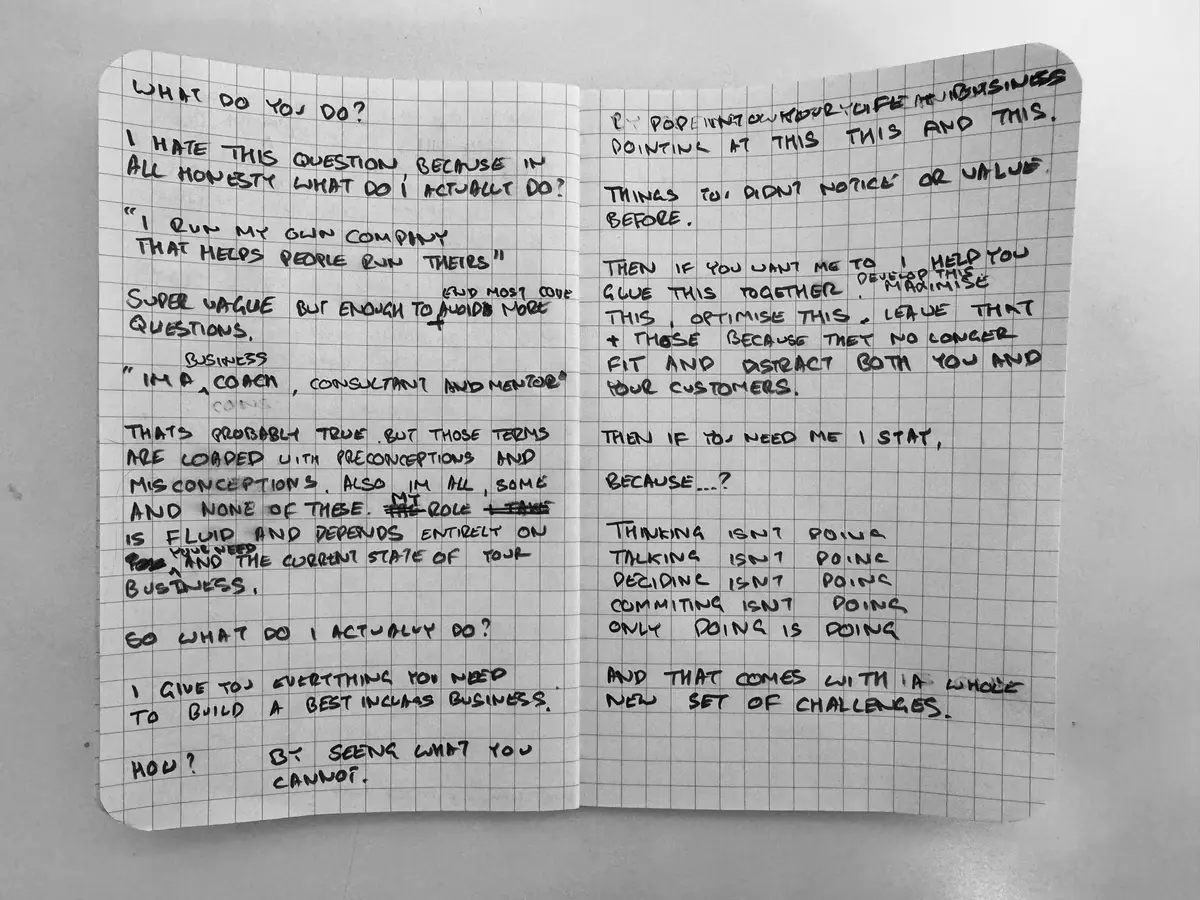 WHAT DO YOU DO?
I HATE THIS QUESTION, BECAUSE IN
ALL HONESTY WHAT DO I ACTUALLY DO?
"I RUN MY OWN COMPANY
THAT HELPS PEOPLE RUN THEIRS"
END MOST CONV
SUPER VAGUE BUT ENOUGH TO AVOID MORE
QUESTIONS.
BUSINESS
"IM A COACH, CONSULTANT AND MENTOR"
CONS
THATS PROBABLY TRUE. BUT THOSE TERMS
ARE LOADED WITH PRECONCEPTIONS AND
MISCONCEPTIONS. ALSO IM ALL, SOME
AND NONE OF THESE. MY ROLE
IS FLUID AND DEPENDS ENTIRELY ON
YOUR NEED
AND THE CURRENT STATE OF YOUR
BUSINESS.
SO WHAT DO I ACTUALLY DO?
I GIVE YOU EVERYTHING YOU NEED
TO BUILD A BEST INCLASS BUSINESS.
HOW? BY SEENG WHAT YOU
CANNOT.
BY YOUR LIFE BUSINESS
POINTING AT THIS THIS AND THIS.
THINGS YOU DIDNT NOTICE OR VALUE
BEFORE.
THEN IF YOU WANT ME TO I HELP YOU
DEVELOP THIS
GLUE THIS TOGETHER. MAXIMISE
THIS, OPTIMISE THIS. LEAVE THAT
+ THOSE BECAUSE THEY NO LONGER
FIT AND DISTRACT BOTH YOU AND
YOUR CUSTOMERS.
THEN IF YOU NEED ME I STAY,
BECAUSE...?
THINKING ISNT DOING
TALKING ISNT DOING
DECIDING ISNT DOING
COMMITING ISNT DOING
ONLY DOING IS DOING
AND THAT COMES WITH A WHOLE
NEW SET OF CHALLENGES.